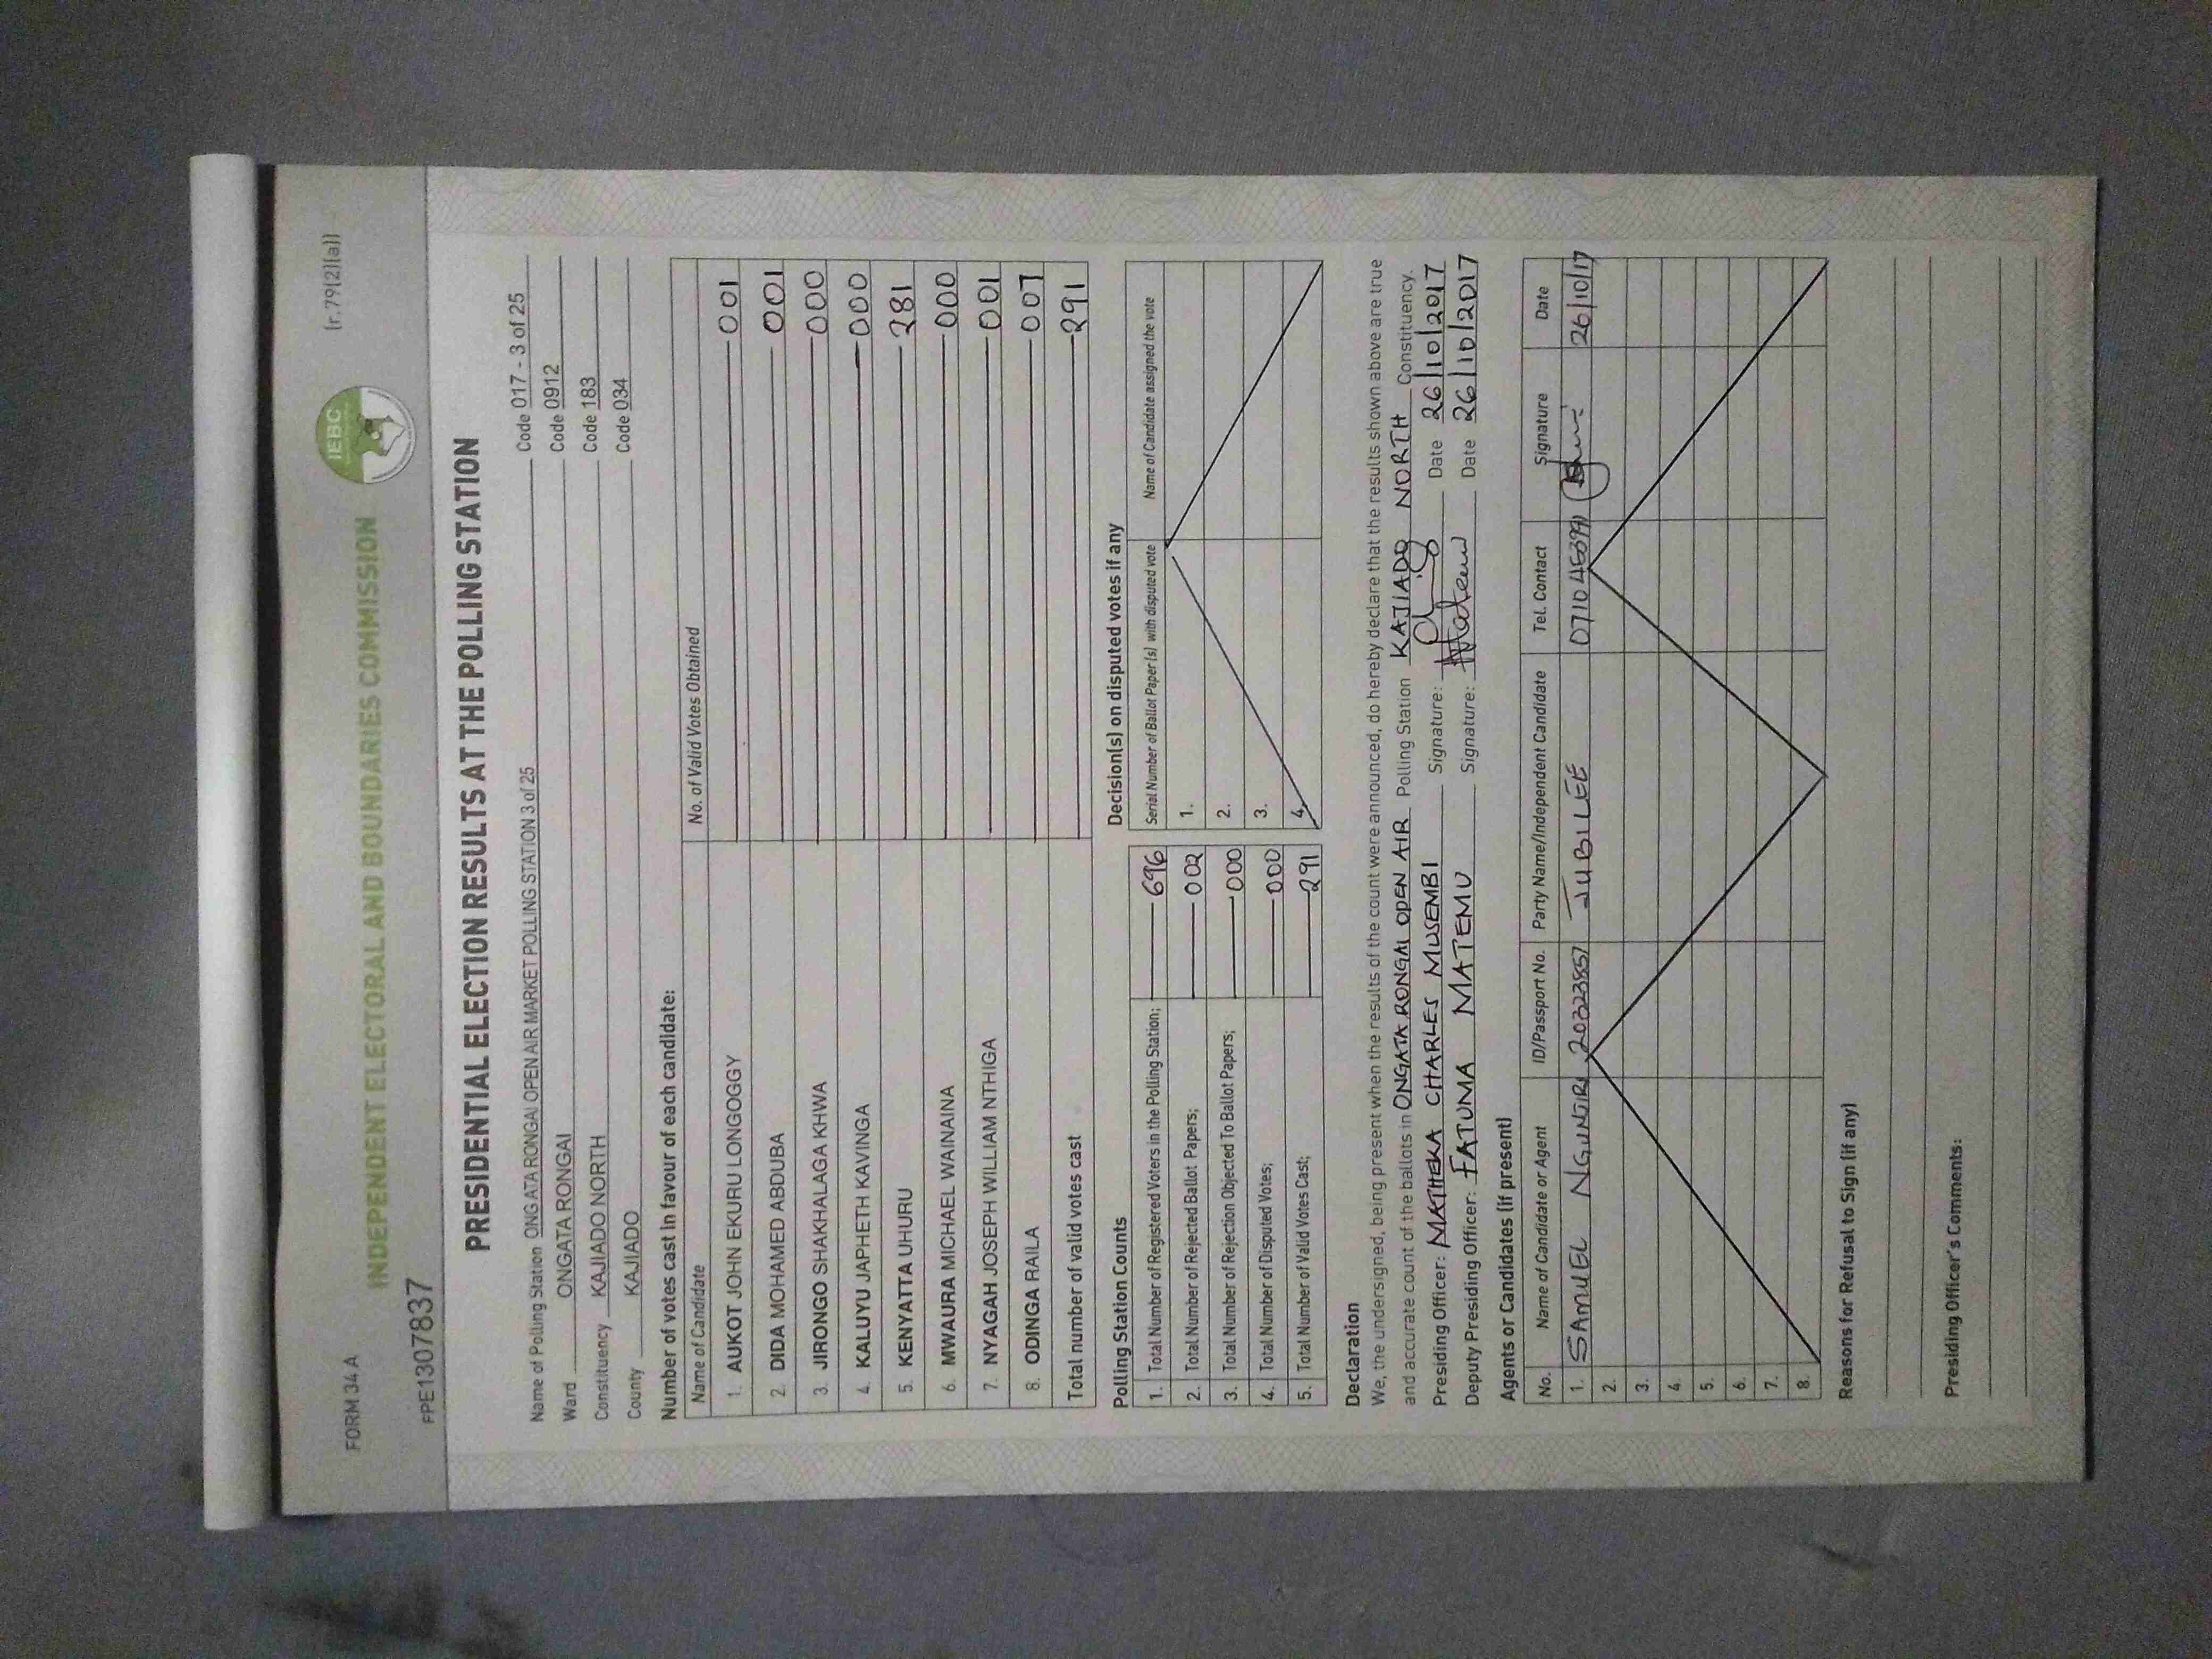 FORM 34 A (r.79(2)(a))
INDEPENDENT ELECTORAL AND BOUNDARIES COMMISSION IEBC
FPE1307837
PRESIDENTIAL ELECTION RESULTS AT THE POLLING STATION
Name of Polling Station ONGATA RONGAI OPEN AIR MARKET POLLING STATION 3 of 25 Code 017 - 3 of 25
Ward ONGATA RONGAI Code 0912
Constituency KAJIADO NORTH Code 183
County KAJIADO Code 034
Number of votes cast in favour of each candidate:
Name of Candidate No. of Valid Votes Obtained
1. AUKOT JOHN EKURU LONGOGGY 001
2. DIDA MOHAMED ABDUBA 001
3. JIRONGO SHAKHALAGA KHWA 000
4. KALUYU JAPHETH KAVINGA 000
5. KENYATTA UHURU 281
6. MWAURA MICHAEL WAINAINA 000
7. NYAGAH JOSEPH WILLIAM NTHIGA 001
8. ODINGA RAILA 007
Total number of valid votes cast 291
Polling Station Counts
1. Total Number of Registered Voters in the Polling Station; 696
2. Total Number of Rejected Ballot Papers; 002
3. Total Number of Rejection Objected To Ballot Papers; 000
4. Total Number of Disputed Votes; 000
5. Total Number of Valid Votes Cast; 291
Decision(s) on disputed votes if any
Serial Number of Ballot Paper(s) with disputed vote Name of Candidate assigned the vote
1.
2.
3.
4.
Declaration
We, the undersigned, being present when the results of the count were announced, do hereby declare that the results shown above are true
and accurate count of the ballots in ONGATA RONGAI OPEN AIR Polling Station KAJIADO NORTH Constituency.
Presiding Officer: MATHEKA CHARLES MUSEMBI Signature: Date 26/10/2017
Deputy Presiding Officer: FATUMA MATEMU Signature: Date 26/10/2017
Agents or Candidates (if present)
No. Name of Candidate or Agent ID/Passport No. Party Name/Independent Candidate Tel. Contact Signature Date
1. SAMUEL NGUNJIRI 203223857 JUBILEE 26/10/17
2.
3.
4.
5.
6.
7.
8.
Reasons for Refusal to Sign (if any)
Presiding Officer's Comments: